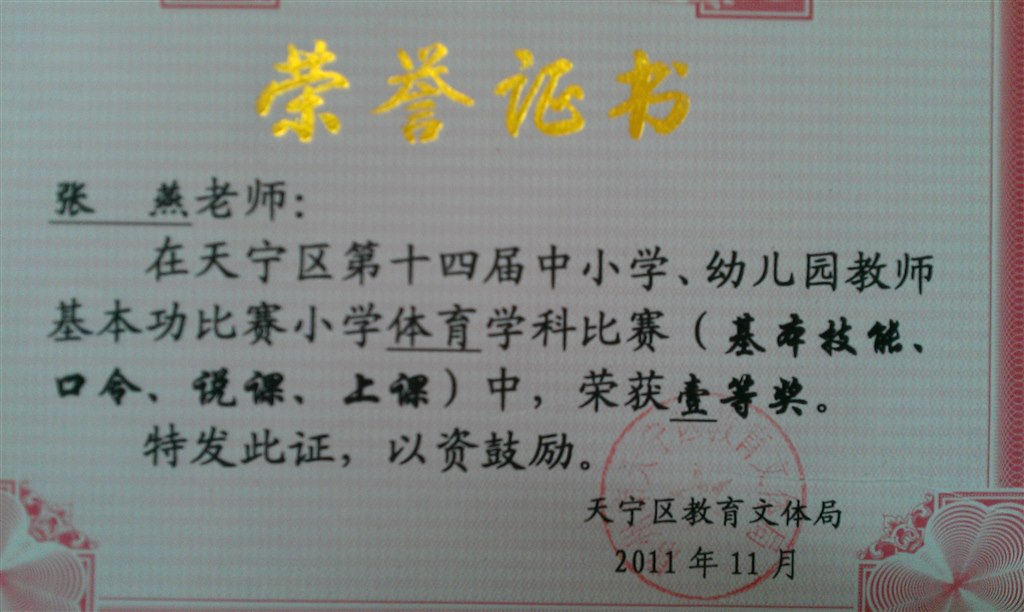 荣誉证书
张 燕老师：
在天宁区第十四届中小学、幼儿园教师
基本功比赛小学体育学科比赛（基本技能、
口令、说课、上课）中，荣获壹等奖。
特发此证，以资鼓励。
天宁区教育文体局
2011 年 11 月